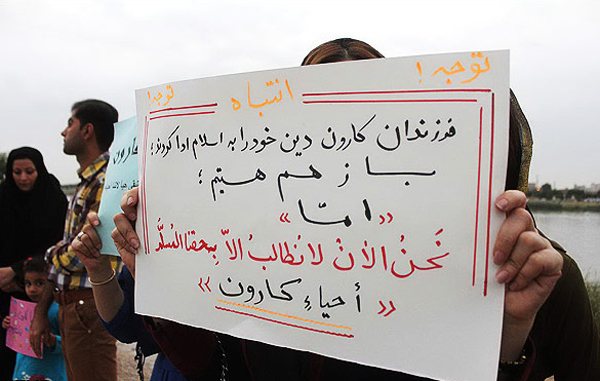 توجه! انتباه توجه!
فرزندان کارون دین خود را به اسلام ادا کردند؛
باز هم هستیم؛
«امّا»
نَحنُ الأنْ لا نُطالبُ الاّ بِحقنا المُسلَّم
«أحیاءِ کارون»
کارون